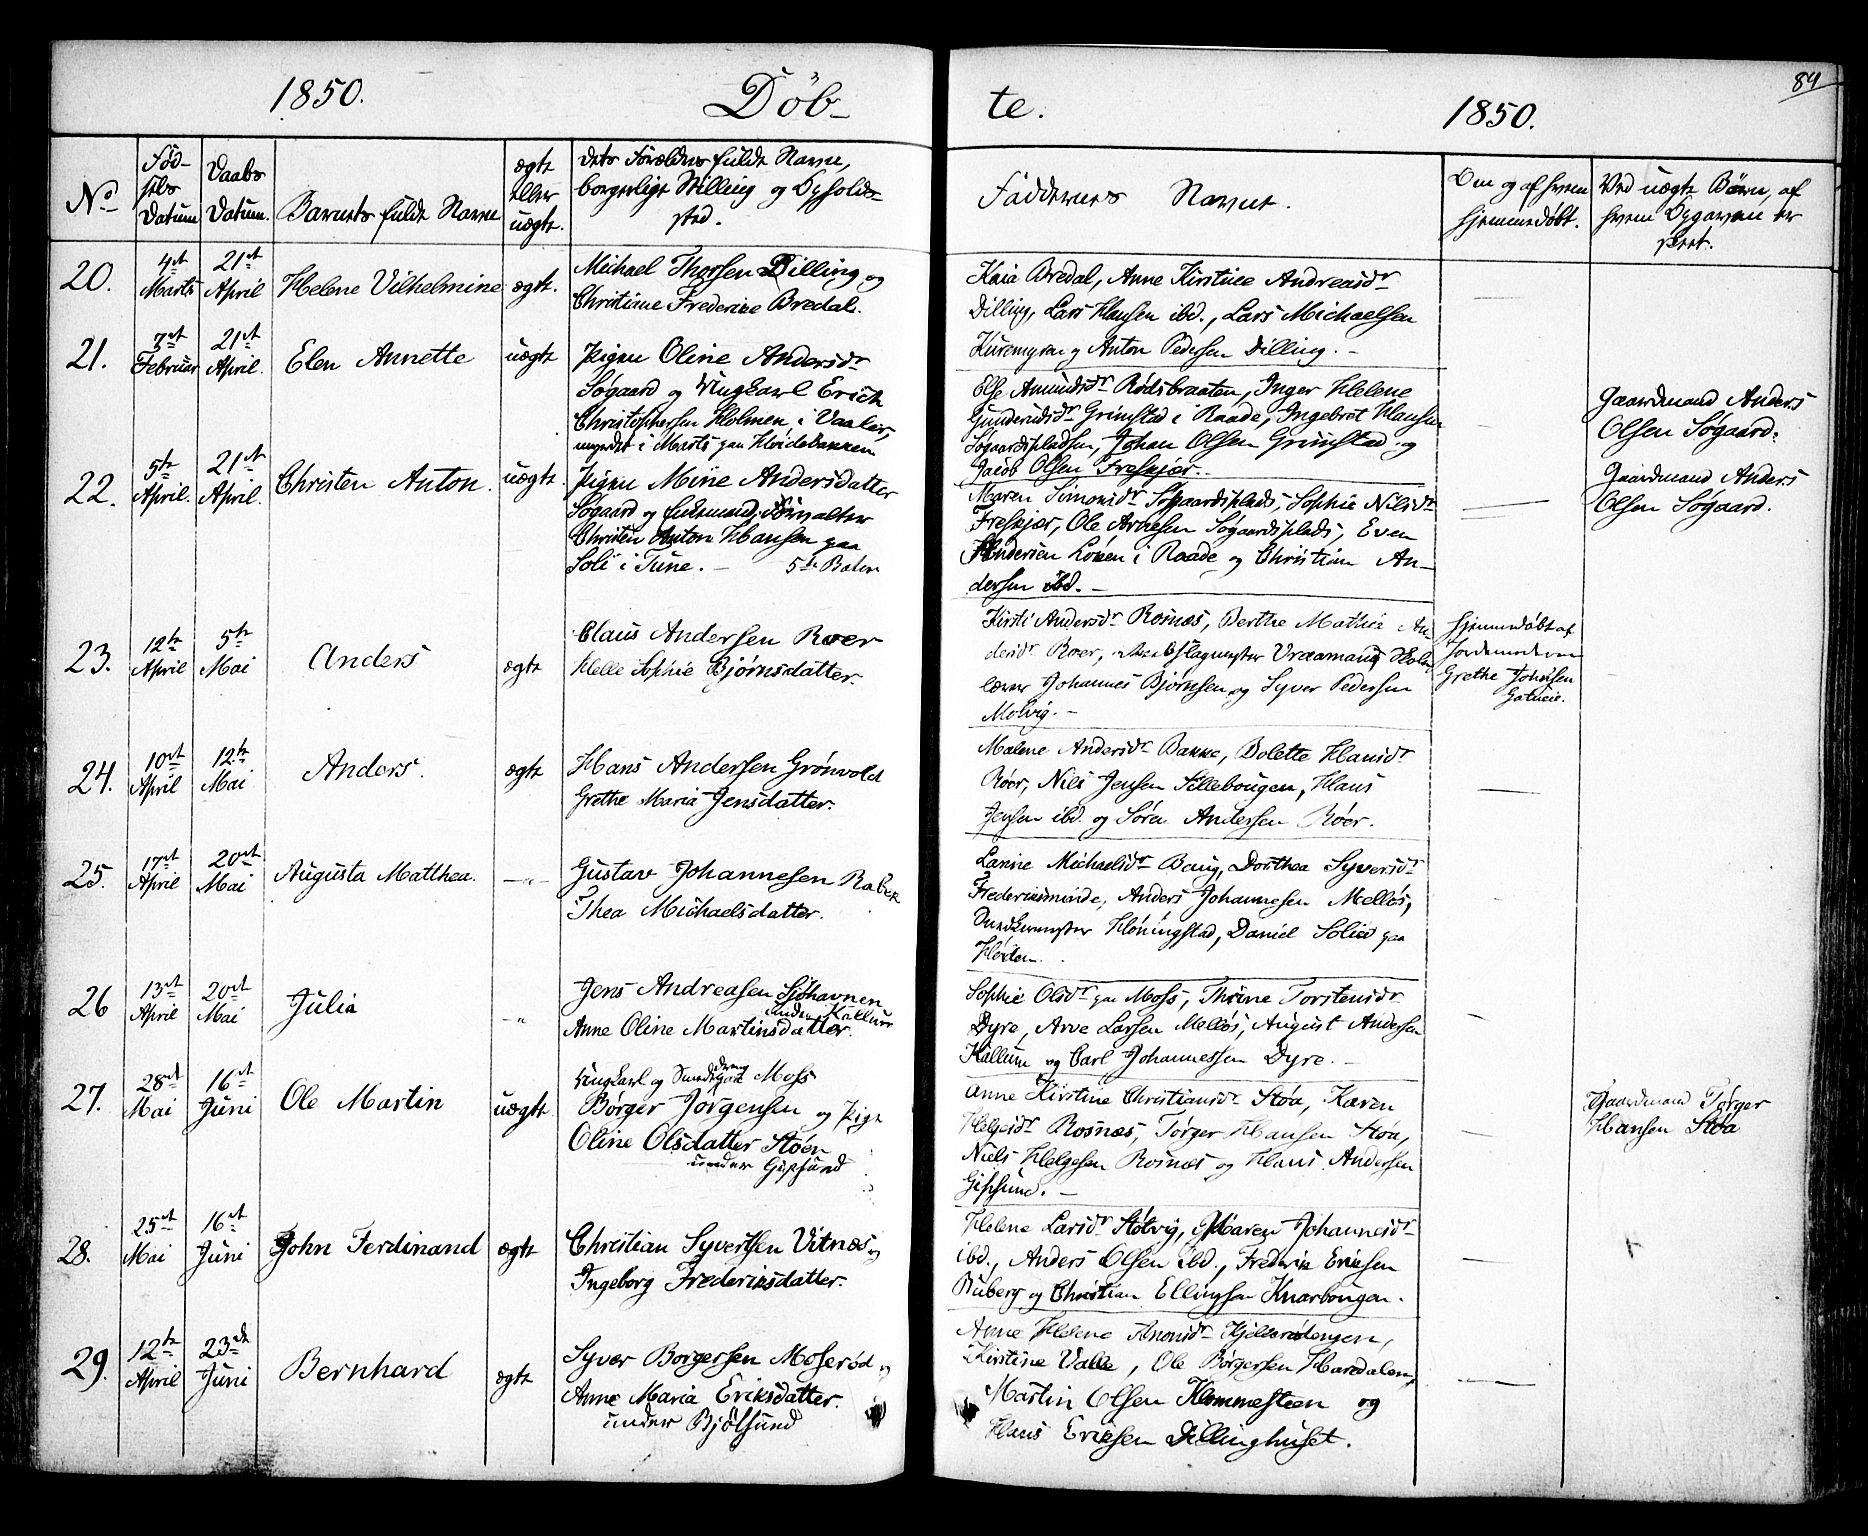 84
1850. Døb-
te. 1850.
No
Fød-
sels
Datum
Daabs
Datum.
Barnets fulde Navne
ægte
eller
uægte.
Dets Forældres fulde Navne,
borgerlige Stilling og Opholds-
sted.
Faddernes Navne.
Om og af hvem
hjemmedøbt.
Ved uægte Børn, af
hvem Opgaven er
skeet.
20.
4de
Marts
21de
April
Helene Vilhelmine
ægte.
Michael Thorsen Dilling og
Christiane Frederike Bredal.
Kaia Bredal, Anne Kirstine Andreasdr
Dilling, Lars Hansen ibd., Lars Michaelsen
Kuremyren og Anton Pedersen Dilling. -
21.
7de
Februar
21de
April.
Elen Annette
uægte
Pigen Oline Andersdr
Søgaard og Ungkarl Erich
Christophersen Holmen i Vaaler,
i Marts paa Hvidebakken
Else Amundsdr Rødsbraaten, Inger Helene
Gundersdr Grimstad i Raade, Ingebret Hansen
Søgaardspladsen, Johan Olsen Grimstad og
Jacob Olsen Freskjær.
Gaardmand Anders
Olsen Søgaard.
22.
5te
April.
21de
April.
Christen Anton.
uægte.
Pigen Mine Andersdatter
Søgaard og Forvalter
Christen Anton Hansen paa
Soli i Tune. -
Maren Simonsdr Søgaardsplads, Sophie Nilsdr
Freskjær, Ole Arnesen Søgaardsplads, Even
Andersen Løken i Raade og Christian An-
dersen ibd. -
Gaardmand Anders
Olsen Søgaard.
23.
12te
April
5te
Mai
Anders
ægte
Claus Andersen Roer
Helle Sophie Bjørnsdatter.
Kirsti Andersdr Rosnæs, Berthe Mathia An-
dersdr Roer,
Johannes Bjørnsen og Syver Pedersen
Molvig. -
Hjemmedøbt af
Jordemoderen
Grethe Johnsen
24.
10de
April
12te
Mai
Anders.
ægte
Hans Andersen Grønvold
Grethe Maria Jensdatter.
Malene Andersdr Bakke, Bolette Hansdr
Röer, Nils Jensen Sillebougen, Hans
Jensen ibd. og Søren Andersen Röer.
25.
17de
April
20de
Mai
Augusta Matthea.
— " —
Gustav Johannesen Rabek
Thea Michaelsdatter.
Larine Michaelsdr Baug, Dorthea Syversdr
Frederiksminde, Anders Johannesen Melløs,
Høningstad, Daniel Solie paa
26
13de
April
20de
Mai
Julia
- "
Jens Andreasen Sjøhavnen
under Kallum
Anne Oline Martinsdatter.
Sophie Olsdr paa Moss, Thrine Torstensdr
Dyre, Arve Larsen Melløs, August Andersen
Kallum og Carl Johannessen Dyre. -
27.
28de
Mai
16de
Juni
Ole Martin
uægte
Ungkarl og Moss
Børger Jørgensen og Pige
Oline Olsdatter Støen
under Gipsund
Anne Kirstine Christiansdr Støa, Karen
Helgesdr Rosnæs, Tørger Hansen Støa,
Niels Helgesen Rosnæs og Hans Andersen
Gipsund. -
Gaardmand Tørger
Hansen Støa
28.
25de
Mai
16de
Juni
John Ferdinand
ægte
Christian Syvertsen Vitnæs og
Ingeborg Frederiksdatter.
Helene Larsdr Støtvig, Maren Johannesdr
ibd., Anders Olsen ibd., Frederik Eriksen
Buberg og Christian Ellingsen Knarbougen.
29.
12te
April
23de
Juni
Bernhard
ægte
Syver Borgersen Moserød og
Anne Maria Eriksdatter.
under Bjølsund
Anne Helene
Kirstine Valle, Ole Børgersen Haredalen,
Martin Olsen Klommesteen og
Hans Eriksen Dillinghuset.